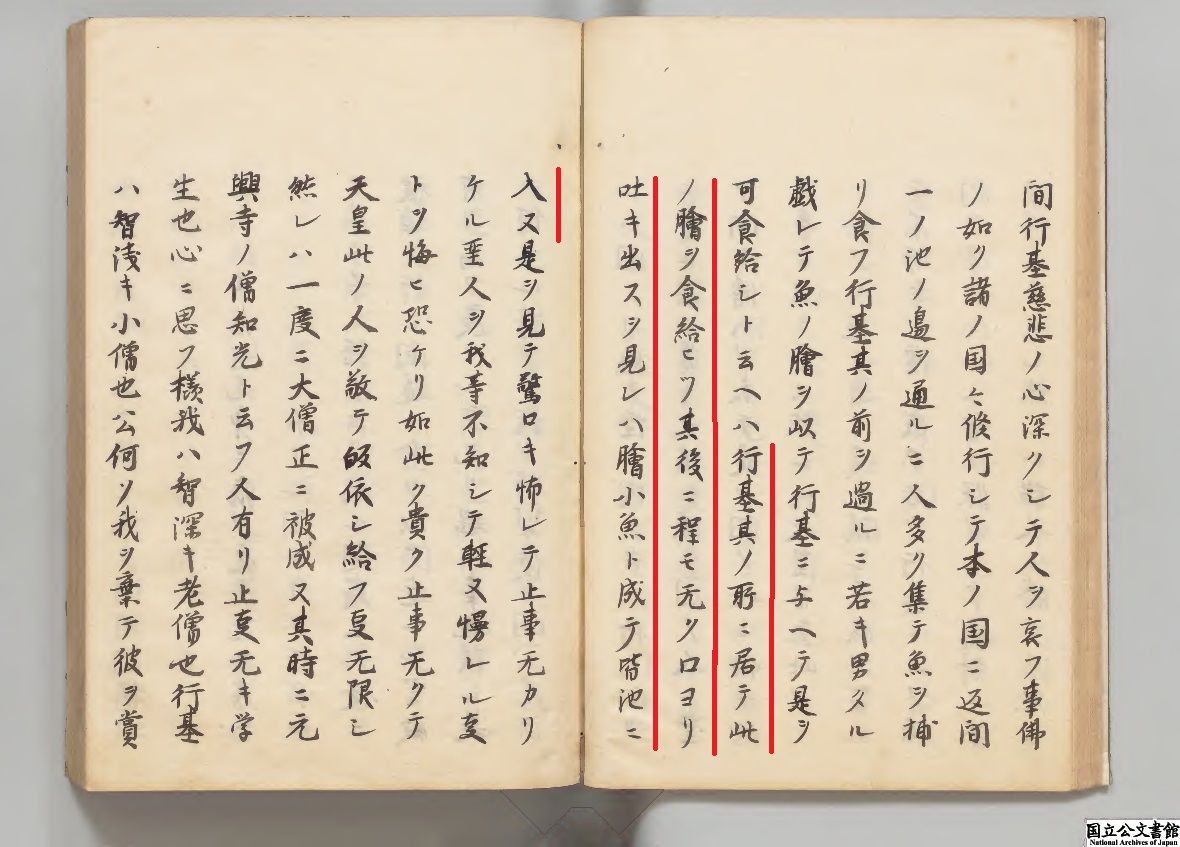 間行基慈悲ノ心深クシテ人ヲ哀フ事佛
ノ如ク諸ノ国々修行シテ本ノ国ニ返間
一ノ池ノ邊ヲ通ルニ人多ク集テ魚ヲ捕
リ食フ行基其ノ前ヲ過ルニ若キ男タル
戯レテ魚ノ膾ヲ以テ行基ニ与ヘテ是ヲ
可食給シト云ヘハ行基其ノ所ニ居テ此
ノ膾ヲ食給ヒツ其後ニ程モ无ク口ヨリ
吐キ出スヲ見レハ膾小魚ト成テ皆池ニ
入ヌ是ヲ見テ驚ロキ怖レテ止事无カリ
ケル聖人ヲ我等不知シテ軽又慢レル叓
トヲ悔ヒ恐ケリ如此ク貴ク止事无クテ
天皇此ノ人ヲ敬テ皈依シ給フ叓无限シ
然レハ一度ニ大僧正ニ被成ヌ其時ニ元
興寺ノ僧知光ト云フ人有リ止叓无キ学
生也心ニ思フ様我ハ智深キ老僧也行基
ハ智淺キ小僧也公何ソ我ヲ棄テ彼ヲ賞
国立公文書館
National Archives of Japan